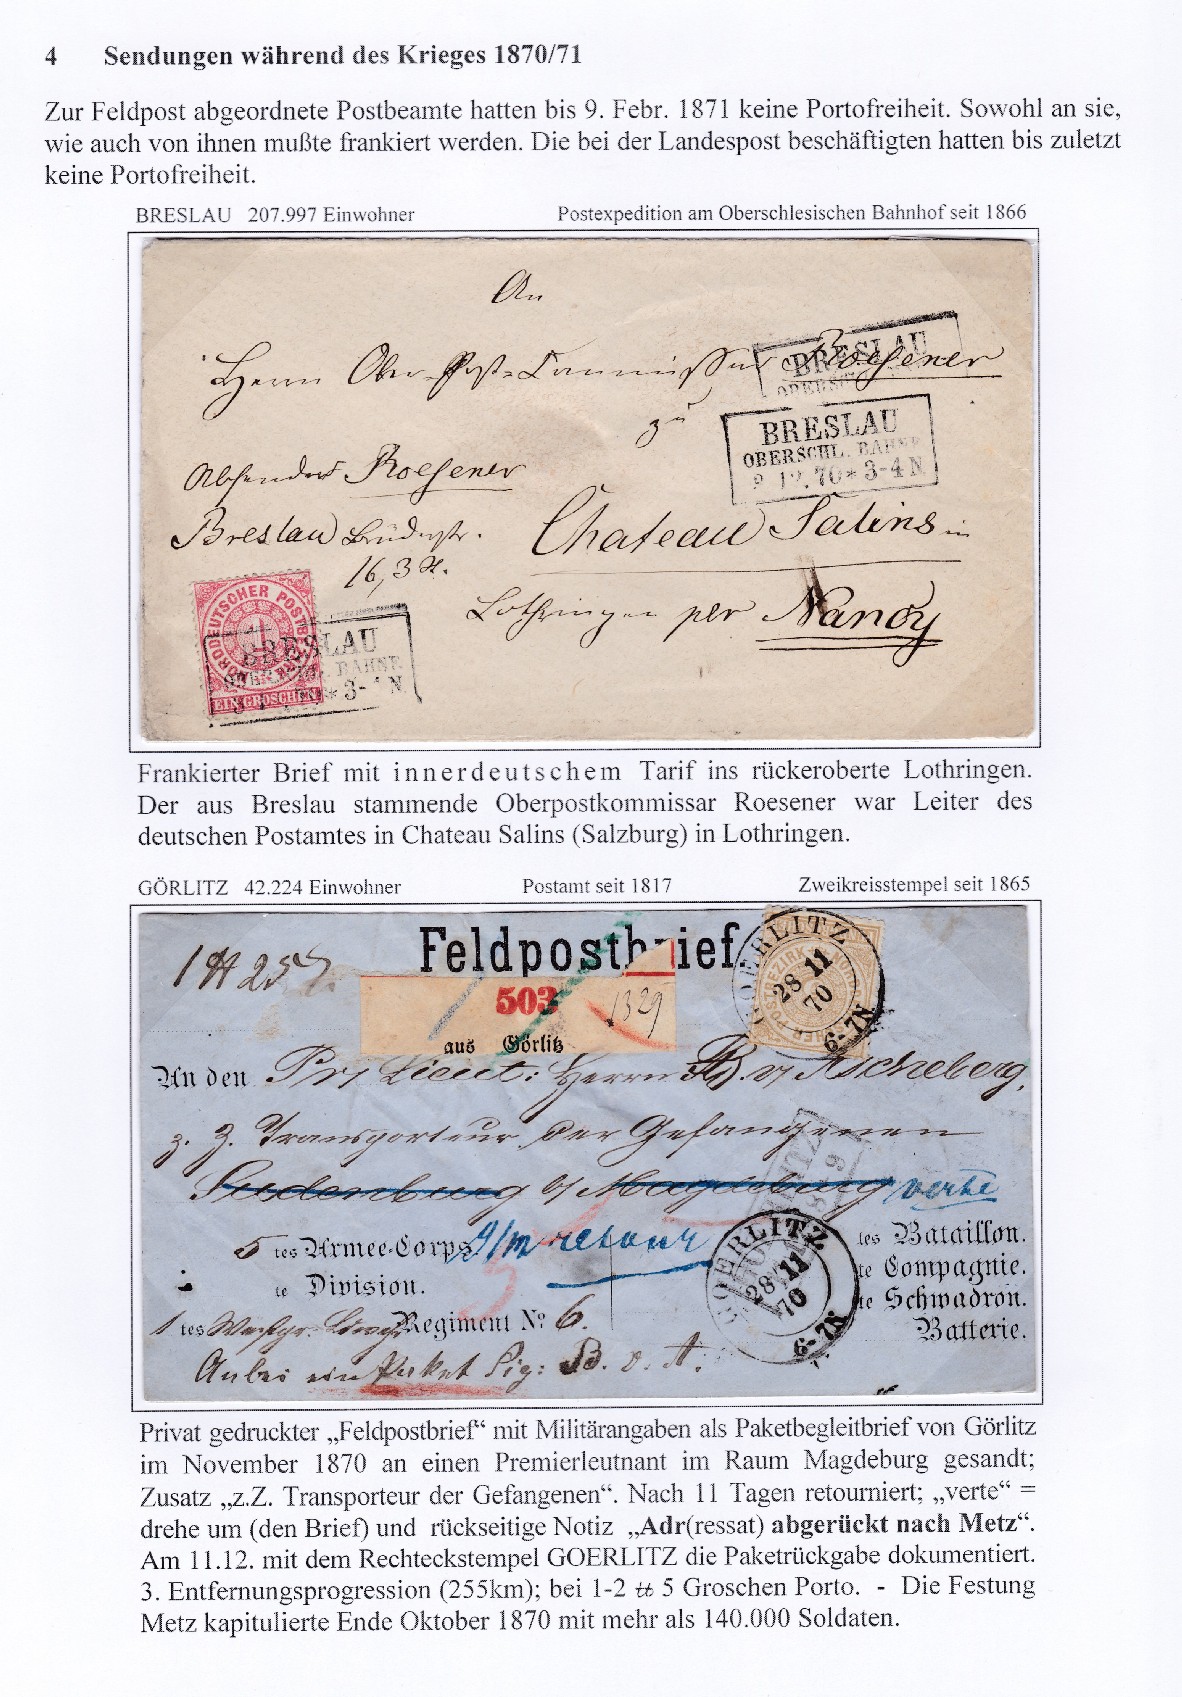 4 Sendungen während des Krieges 1870/71
Zur Feldpost abgeordnete Postbeamte hatten bis 9. Febr. 1871 keine Portofreiheit. Sowohl an sie,
wie auch von ihnen mußte frankiert werden. Die bei der Landespost beschäftigten hatten bis zuletzt
keine Portofreiheit.
BRESLAU 207.997 Einwohner Postexpedition am Oberschlesischen Bahnhof seit 1866
An
Herrn Ober-Post-Commissar Roesener
BRESLAU
zu
BRESLAU
OBERSCHL. BAHNH
12.70 * 3-4 N
Absender Roesener
Breslau Brüderstr.
16, 3
Chateau Salins in
Lothringen per Nancy
NORDDEUTSCHER POSTBEZIRK
1
EIN GROSCHEN
BRESLAU
BAHNH
* 3-4 N
Frankierter Brief mit innerdeutschem Tarif ins rückeroberte Lothringen.
Der aus Breslau stammende Oberpostkommissar Roesener war Leiter des
deutschen Postamtes in Chateau Salins (Salzburg) in Lothringen.
GÖRLITZ 42.224 Einwohner Postamt seit 1817 Zweikreisstempel seit 1865
Feldpostbrief
503
1329
aus Görlitz
GOERLITZ
28 11
70
6-7N
An den Pr. Lieut: Herrn B. v. Ascheberg,
z. Z. Transporteur der Gefangenen
Sudenburg b/ Magdeburg verte
5 tes Armee-Corps retour
te Division.
1 tes Regiment No 6.
Anbei ein Paket Sig: B. v. A.
GOERLITZ
28 11
70
6-7N
tes Bataillon.
te Compagnie.
te Schwadron.
Batterie.
Privat gedruckter „Feldpostbrief“ mit Militärangaben als Paketbegleitbrief von Görlitz
im November 1870 an einen Premierleutnant im Raum Magdeburg gesandt;
Zusatz „z.Z. Transporteur der Gefangenen“. Nach 11 Tagen retourniert; „verte“ =
drehe um (den Brief) und rückseitige Notiz „Adr(ressat) abgerückt nach Metz“.
Am 11.12. mit dem Rechteckstempel GOERLITZ die Paketrückgabe dokumentiert.
3. Entfernungsprogression (255km); bei 1-2 ℔ 5 Groschen Porto. - Die Festung
Metz kapitulierte Ende Oktober 1870 mit mehr als 140.000 Soldaten.